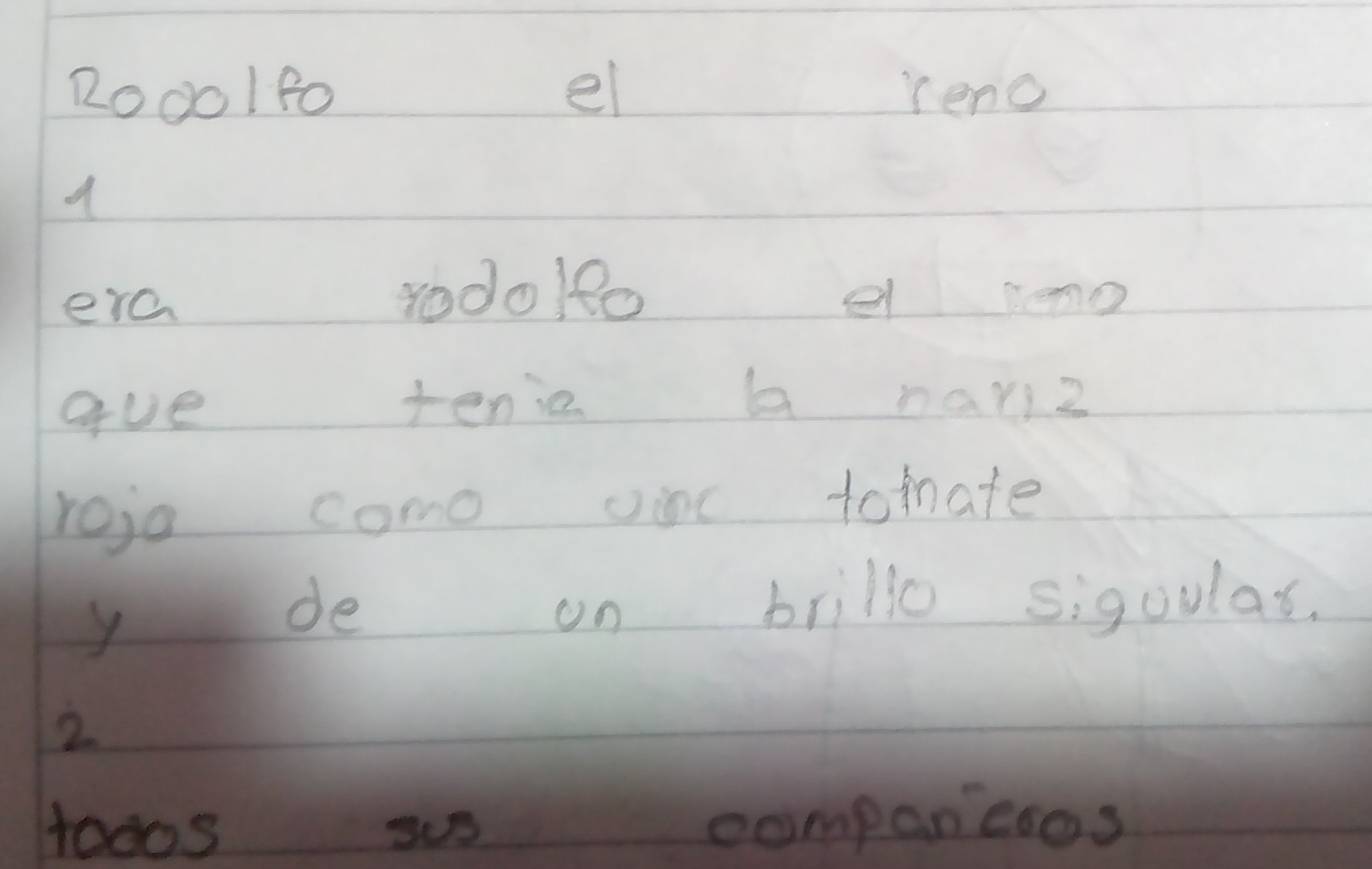 Rodolfo el reno
1
era rodolfo el reno
que tenia la nariz
roja como un tomate
y de un brillo siguular.
2
todos sus compañeros